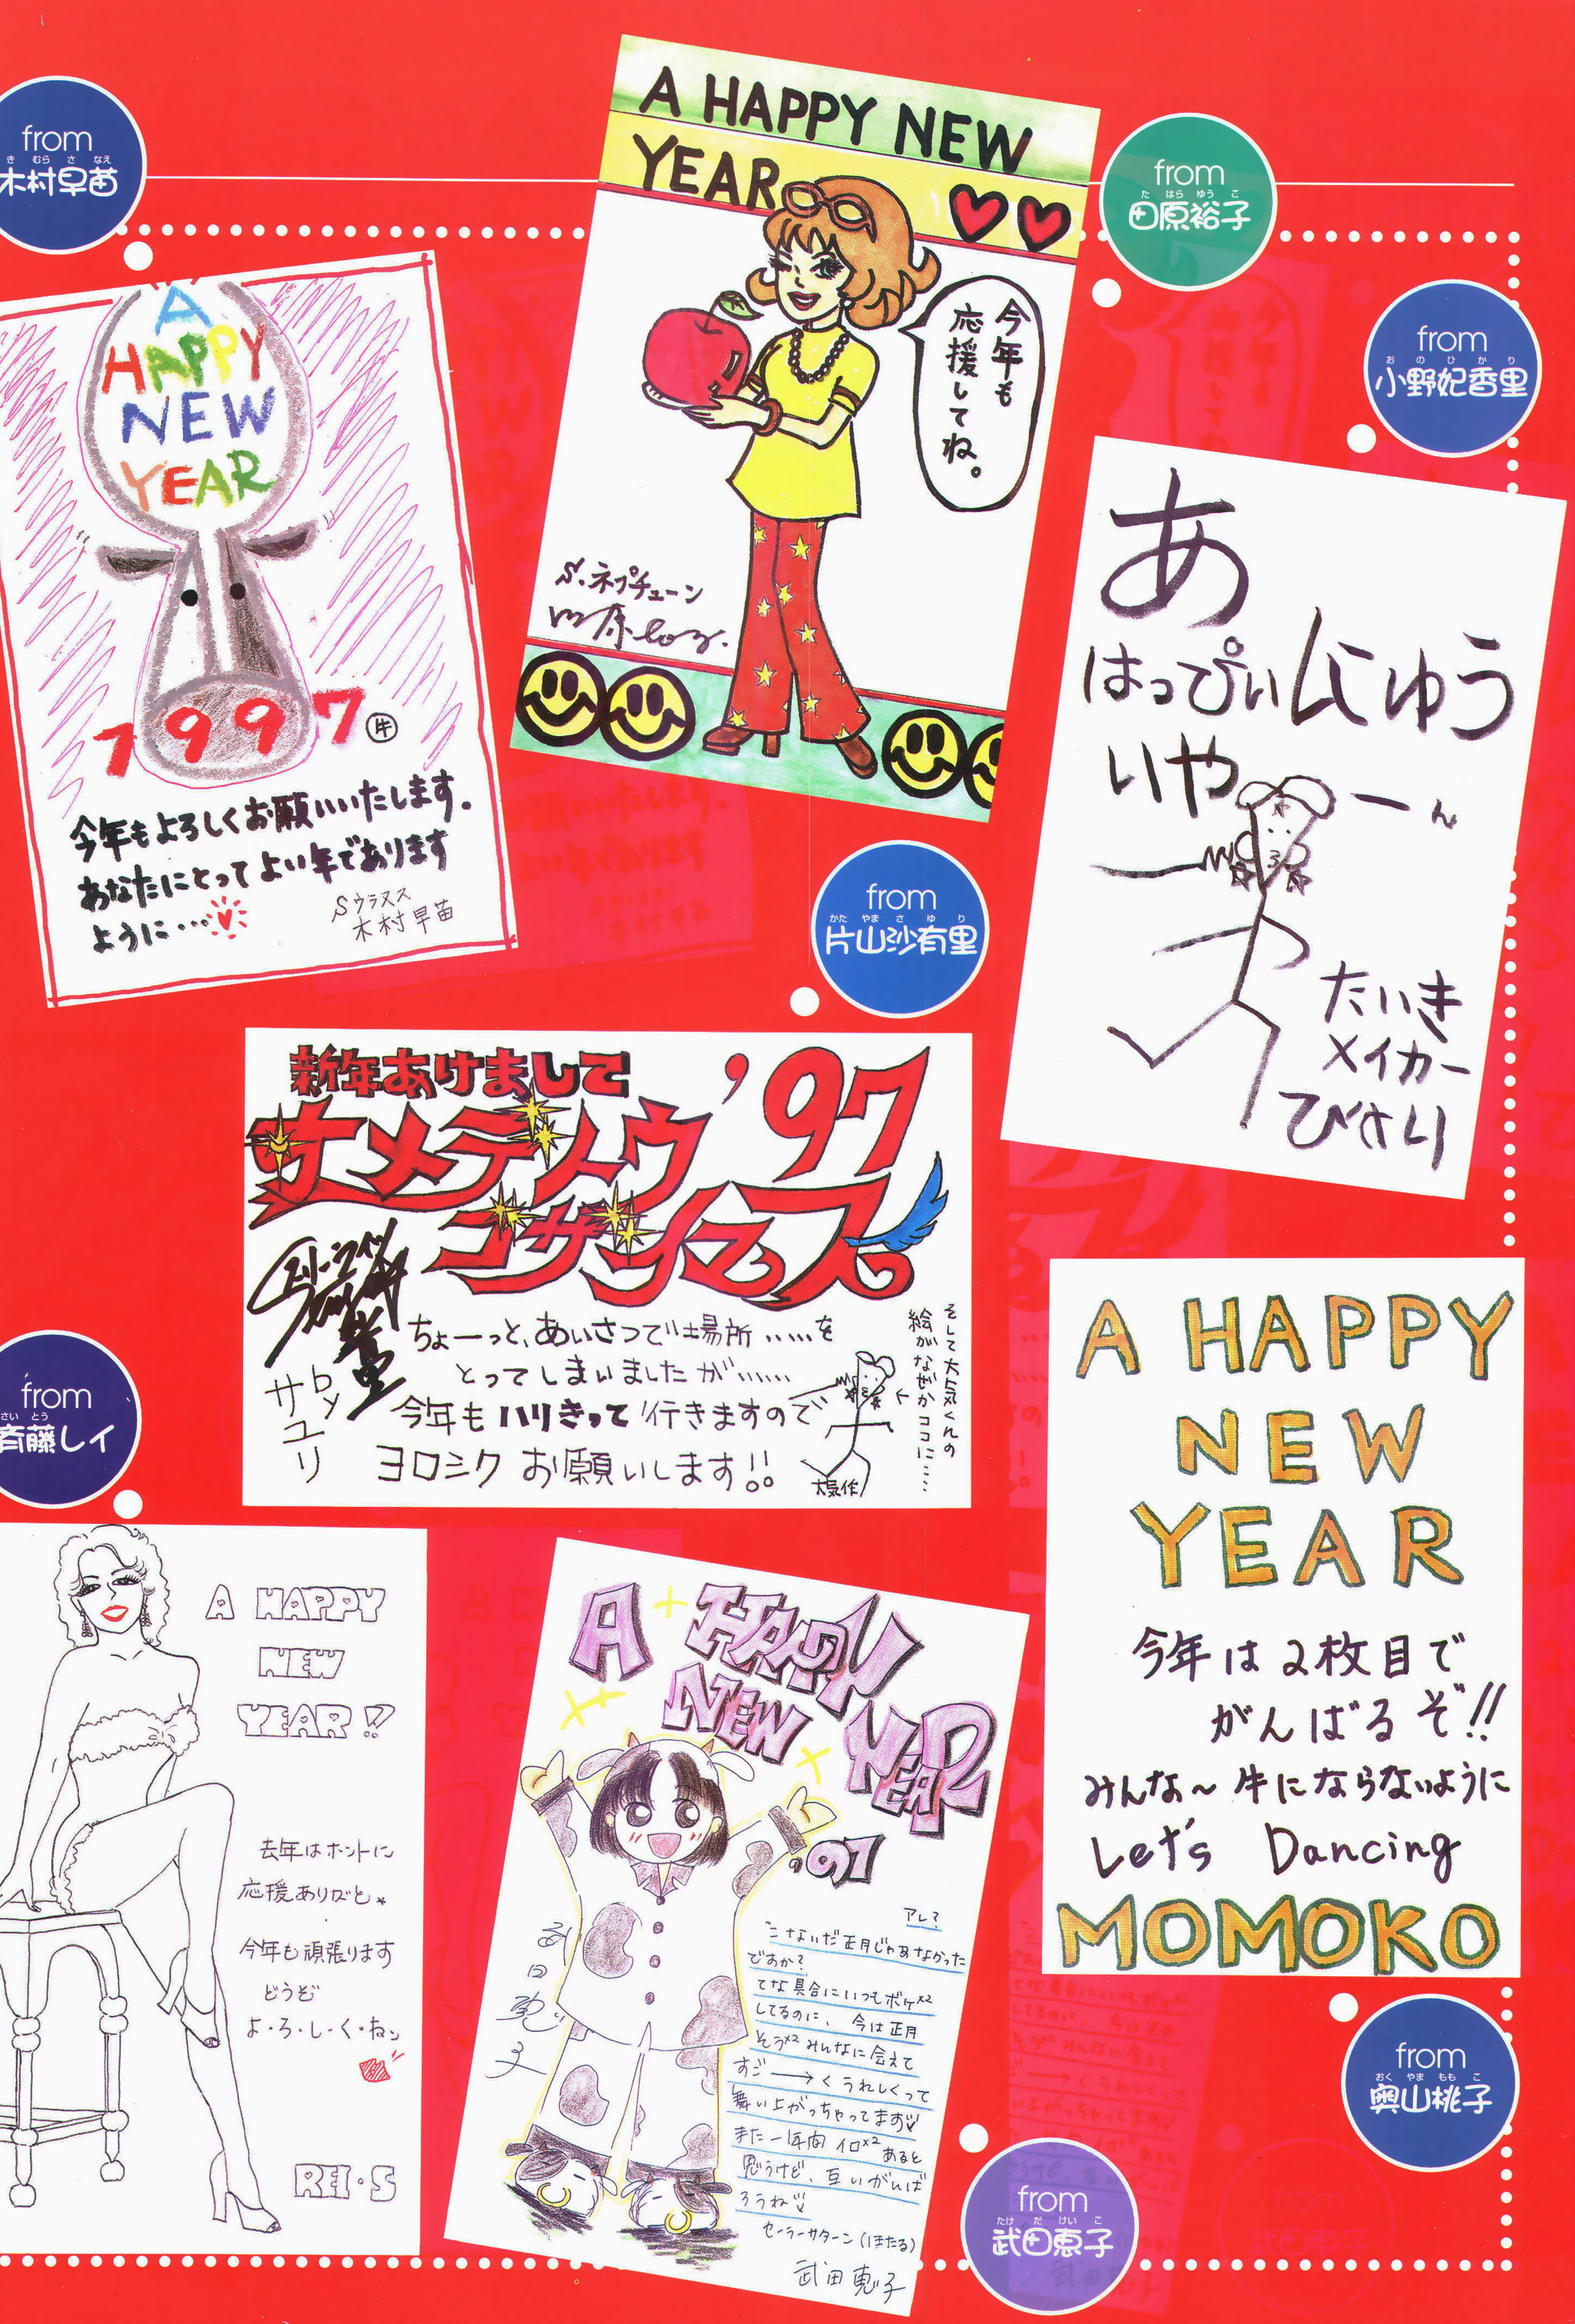 from
き むら さ なえ
木村早苗
A
HAPPY
NEW
YEAR
1997
牛
今年もよろしくお願いいたします。
あなたにとってよい年であります
ように…
Sウラヌス
木村早苗
A HAPPY NEW
YEAR
今年も
応援してね。
S.ネプチューン
from
た はら ゆう こ
田原裕子
from
お の ひ か り
小野妃香里
あ
はっぴいにゅう
いやーん
たいき
メイカー
ひかり
from
かた やま さ ゆ り
片山沙有里
新年あけまして
オメデトウ
'97
ゴザイマス。
ちょーっと、あいさつで場所……を
とってしまいましたが……
今年もハリきって行きますので
ヨロシクお願いします!!
by
サユリ
そして大気くんの
絵がなぜかココに……
大気作
from
さい とう
斉藤レイ
A HAPPY
NEW
YEAR!!
去年はホントに
応援ありがと
今年も頑張ります
どうぞ
よ・ろ・し・く・ねン
REI・S
A HAPPY
NEW YEAR
'97
アレ?
こないだ正月じゃあなかった
ですか?
てな具合にいつもボケ×2
してるのに、今は正月
そう×2みんなに会えて
すご→くうれしくって
舞い上がっちゃってます
また一年間イロ×2あると
思うけど、互いがんば
ろうね
セーラーサターン(ほたる)
武田恵子
from
たけ だ けい こ
武田恵子
A HAPPY
NEW
YEAR
今年は2枚目で
がんばるぞ!!
みんな～牛にならないように
Let's Dancing
MOMOKO
from
おく やま もも こ
奥山桃子